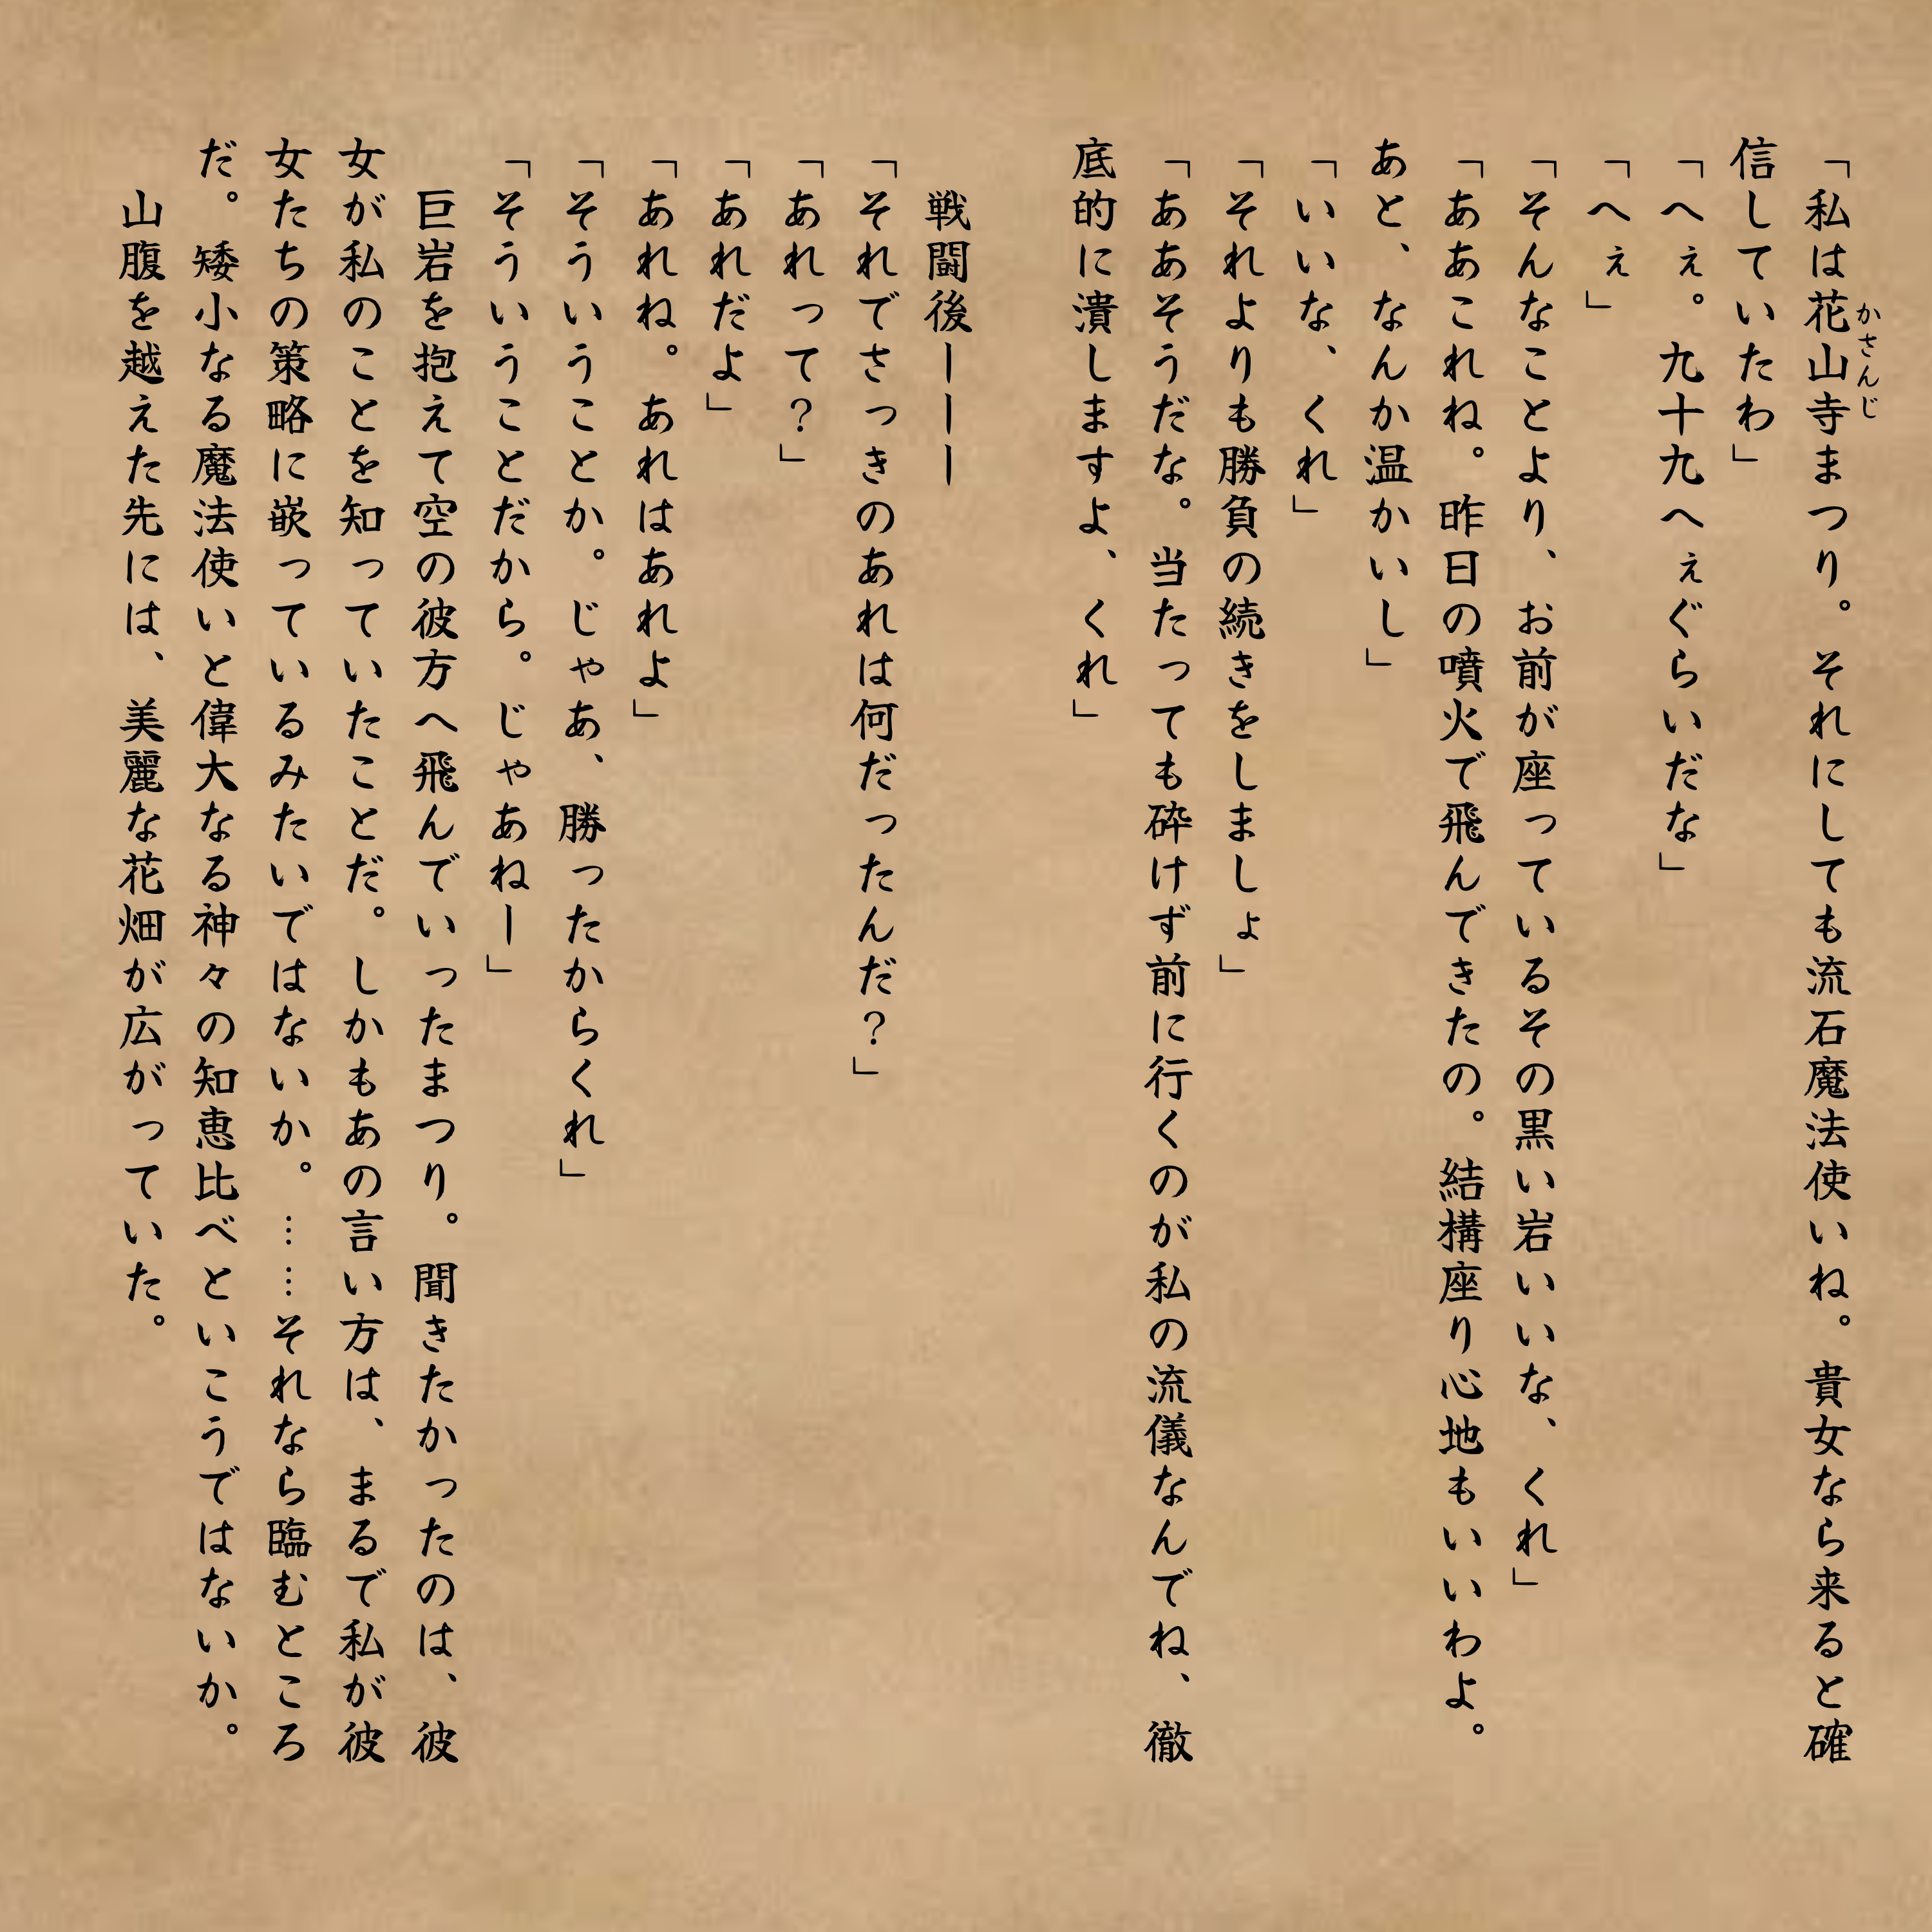 「私は花山寺まつり。それにしても流石魔法使いね。貴女なら来ると確
かさんじ
信していたわ」
「へぇ。九十九へぇぐらいだな」
「へぇ」
「そんなことより、お前が座っているその黒い岩いいな、くれ」
「ああこれね。昨日の噴火で飛んできたの。結構座り心地もいいわよ。
あと、なんか温かいし」
「いいな、くれ」
「それよりも勝負の続きをしましょ」
「ああそうだな。当たっても砕けず前に行くのが私の流儀なんでね、徹
底的に潰しますよ、くれ」
戦闘後ーーー
「それでさっきのあれは何だったんだ？」
「あれって？」
「あれだよ」
「あれね。あれはあれよ」
「そういうことか。じゃあ、勝ったからくれ」
「そういうことだから。じゃあねー」
巨岩を抱えて空の彼方へ飛んでいったまつり。聞きたかったのは、彼
女が私のことを知っていたことだ。しかもあの言い方は、まるで私が彼
女たちの策略に嵌っているみたいではないか。……それなら臨むところ
だ。矮小なる魔法使いと偉大なる神々の知恵比べといこうではないか。
山腹を越えた先には、美麗な花畑が広がっていた。